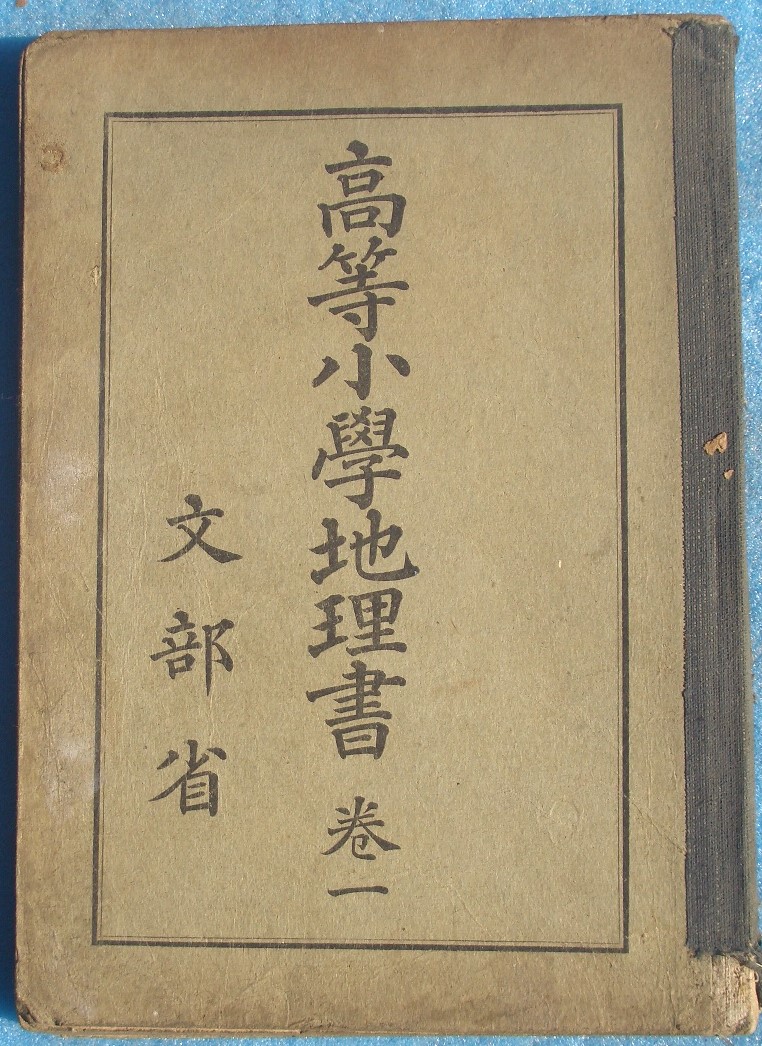 高等小學地理書 卷一
文部省